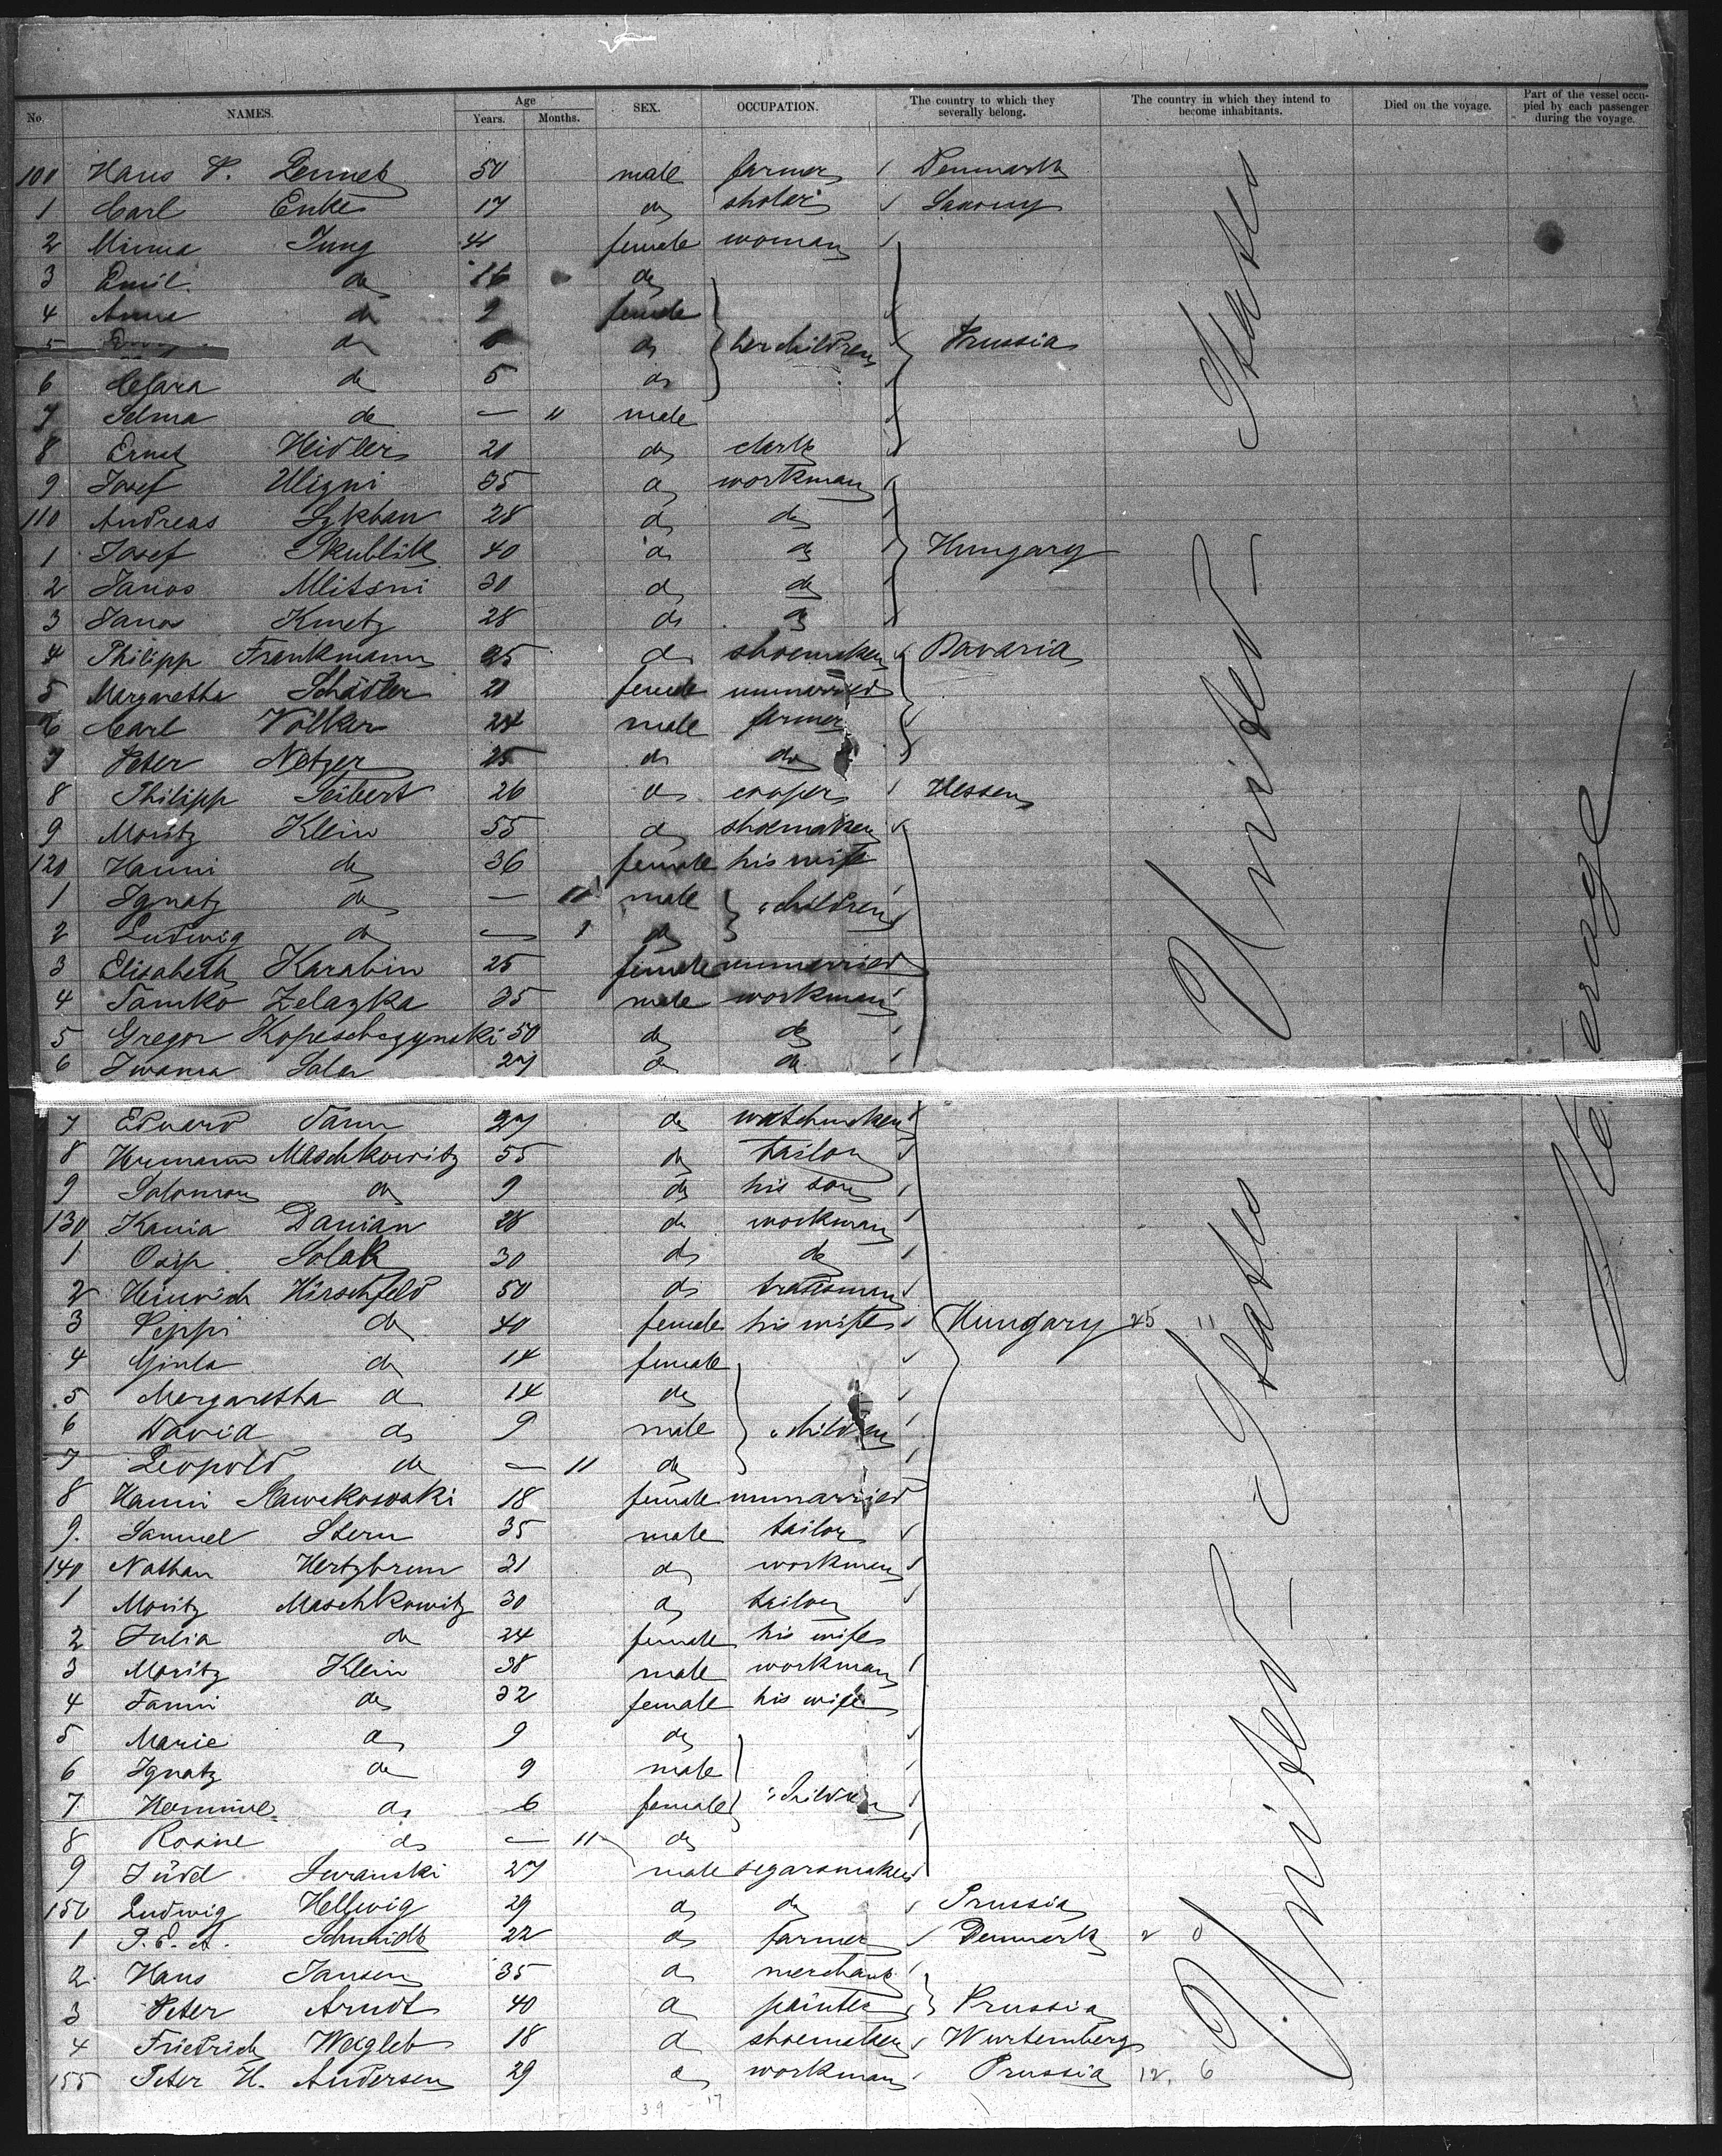 No. NAMES. Age Years. Months. SEX. OCCUPATION. The country to which they severally belong. The country in which they intend to become inhabitants. Died on the voyage. Part of the vessel occupied by each passenger during the voyage.
100 Hans P. 50 male farmer Denmark
1 Carl Enke 17 do sholar Saxony
2 Minna Jung 41 female woman
3 Emil do 16 do
4 Anna do 9 female
5 do do her children Prussia
6 Clara do 5 do
7 Selma do — 11 male
8 Ernst Heidler 20 do clark
9 Josef 35 do workman
110 Andreas 28 do do
1 Josef Skublik 40 do do Hungary
2 Janos Mlitsni 30 do do
3 Janos Kmetz 28 do do
4 Philipp Frankmann 25 do shoemaker Bavaria
5 Margaretha Schädler 20 female unmarried
6 Carl Völker 24 male farmer
7 Peter Netzer 25 do do
8 Philipp Seibert 26 do cooper Hessen
9 Moritz Klein 55 do shoemaker
120 Hanni do 36 female his wife
1 Ignatz do — 11 male children
2 Ludwig do — do
3 Elisabeth Karabin 25 female unmarried
4 Tamko Zelazka 35 male workman
5 Gregor Kopeschczynski 50 do do
6 Iwanra 27 do do
7 Eduard Tann 27 do watchmaker
8 Hermann Maschkowitz 55 do tailor
9 Salomon do 9 do his son
130 Kania Danian 28 do workman
1 Osip Solak 30 do do
2 Heinrich Hirschfeld 50 do tradesman
3 Peppi do 40 female his wife Hungary 25 11
4 Giula do 14 female
5 Margaretha do 14 do
6 David do 9 male children
7 Leopold do — 11 do
8 Hanni 18 female unmarried
9 Samuel Stern 35 male tailor
140 Nathan Hertzbrun 31 do workman
1 Moritz Maschkowitz 30 do tailor
2 Julia do 24 female his wife
3 Moritz Klein 38 male workman
4 Fanni do 32 female his wife
5 Marie do 9 do
6 Ignatz do 9 male
7 Hermine do 6 female children
8 Rosine do — 11 do
9 Jüdel Suranski 27 male segarsmaker
150 Ludwig Hellwig 29 do do Prussia
1 P. E. A. Schmidt 22 do farmer Denmark 2 0
2 Hans Jansen 35 do merchant
3 Peter Arndt 40 do painter Prussia
4 Friedrich Weigleb 18 do shoemaker Wurtemberg
155 Peter H. Andersen 29 do workman Prussia 12. 6
39 - 17
United States
United States
Steerage